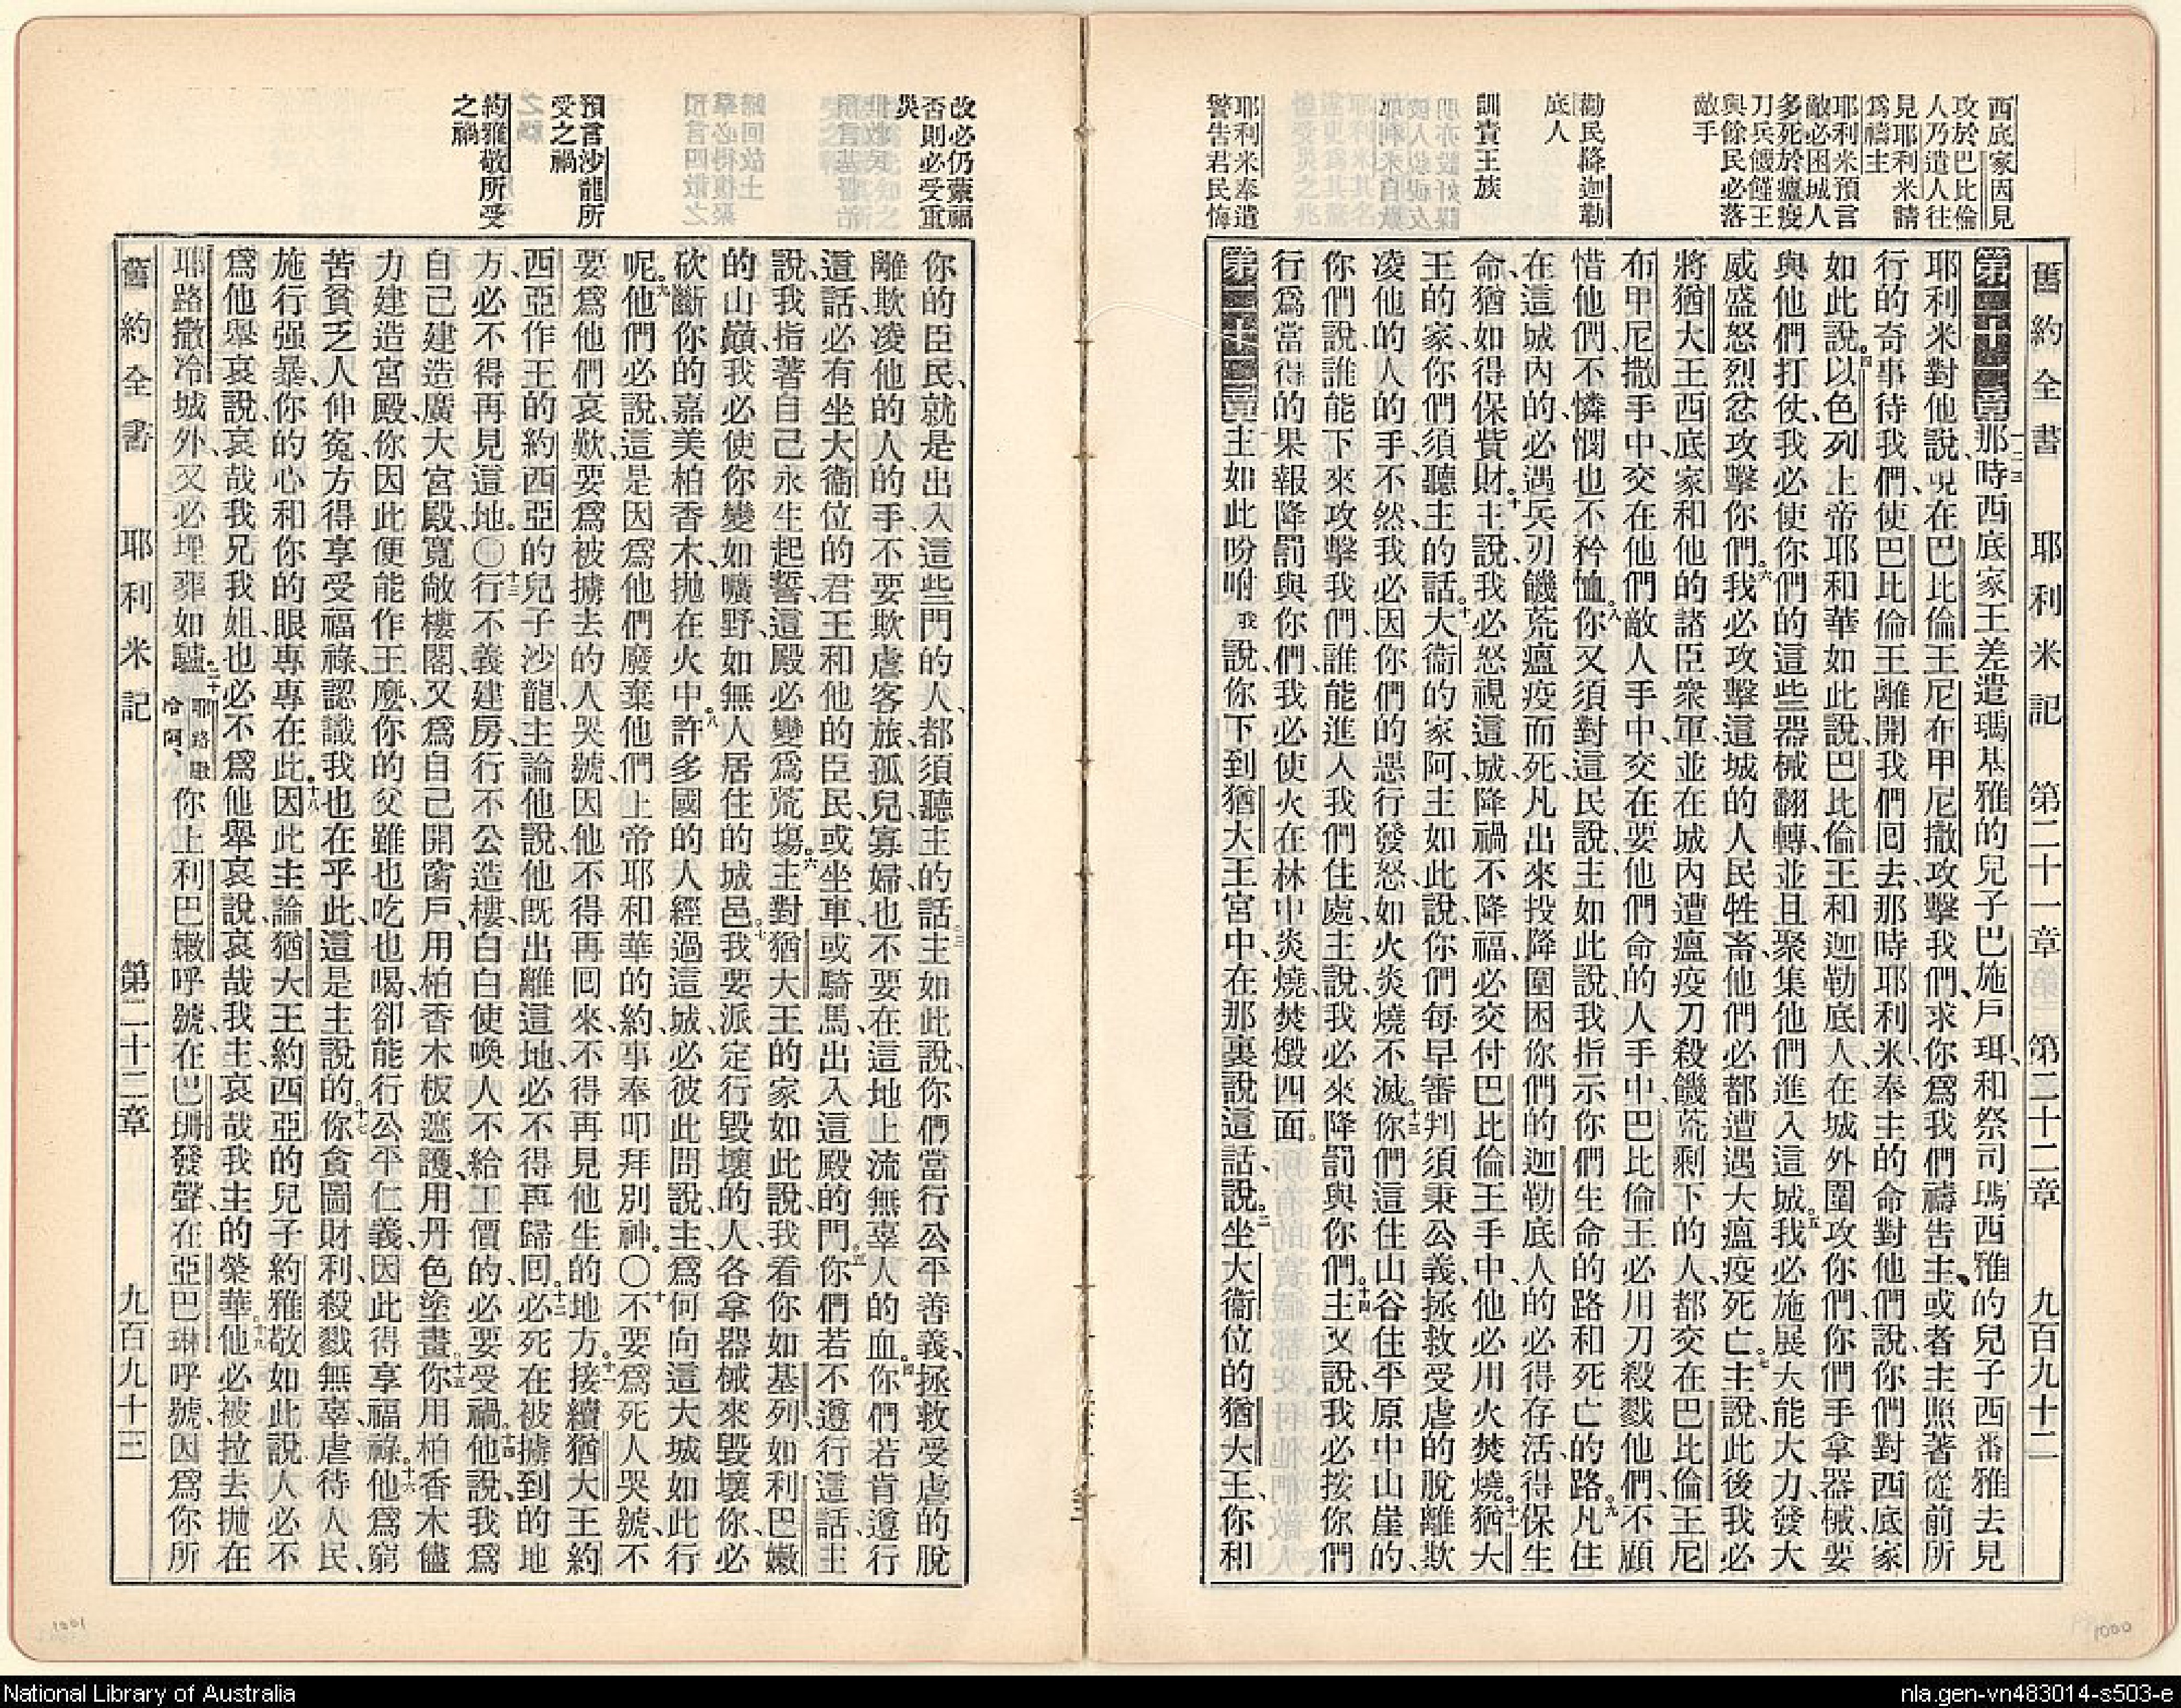 舊約全書 耶利米記 第二十一章 第二十二章 九百九十二
西底家因見
攻於巴比倫
人乃遣人往
見耶利米請
爲禱主
耶利米預言
敵必困城人
多死於瘟疫
刀兵饑饉王
與餘民必落
敵手
勸民降迦勒
底人
訓責王族
耶利米奉遣
警告君民悔
第二十一章 一二三那時西底家王差遣瑪基雅的兒子巴施戶珥、和祭司瑪西雅的兒子西番雅去見
耶利米對他說、現在巴比倫王尼布甲尼撒攻擊我們、求你爲我們禱告主、或者主照著從前所
行的奇事待我們、使巴比倫王離開我們回去、那時耶利米奉主的命對他們說、你們對西底家
如此說。四以色列上帝耶和華如此說、巴比倫王和迦勒底人在城外圍攻你們、你們手拿器械、要
與他們打仗、我必使你們的這些器械翻轉、並且聚集他們進入這城。五我必施展大能大力、發大
威盛怒烈忿攻擊你們。六我必攻擊這城的人民牲畜、他們必都遭遇大瘟疫死亡。七主說、此後我必
將猶大王西底家、和他的諸臣衆軍、並在城內遭瘟疫刀殺饑荒剩下的人、都交在巴比倫王尼
布甲尼撒手中、交在他們敵人手中、交在要他們命的人手中、巴比倫王必用刀殺戮他們、不顧
惜他們、不憐憫也不矜恤。八你又須對這民說、主如此說、我指示你們生命的路和死亡的路。九凡住
在這城內的、必遇兵刃饑荒瘟疫而死、凡出來投降圍困你們的迦勒底人的必得存活、得保生
命、猶如得保貲財。十主說、我必怒視這城、降禍不降福、必交付巴比倫王手中、他必用火焚燒。十一猶大
王的家、你們須聽主的話。十二大衞的家阿、主如此說、你們每早審判須秉公義、拯救受虐的脫離欺
凌他的人的手、不然、我必因你們的惡行發怒、如火炎燒不滅。十三你們這住山谷住平原中山崖的、
你們說、誰能下來攻擊我們、誰能進入我們住處、主說、我必來降罰與你們。十四主又說、我必按你們
行爲當得的果報降罰與你們、我必使火在林中炎燒、焚燬四面。
第二十二章 一主如此吩咐我說、你下到猶大王宮中、在那裏說這話、說。二坐大衞位的猶大王、你和
改必仍蒙福
否則必受重
災
預言沙龍所
受之禍
約雅敬所受
之禍
你的臣民、就是出入這些門的人、都須聽主的話。三主如此說、你們當行公平善義、拯救受虐的脫
離欺凌他的人的手、不要欺虐客旅、孤兒、寡婦、也不要在這地上流無辜人的血。四你們若肯遵行
這話、必有坐大衞位的君王、和他的臣民、或坐車、或騎馬、出入這殿的門。五你們若不遵行這話、主
說、我指著自己永生起誓、這殿必變爲荒塲。六主對猶大王的家如此說、我看你如基列、如利巴嫩
的山巔、我必使你變如曠野、如無人居住的城邑。七我要派定行毀壞的人、各拿器械來毀壞你、必
砍斷你的嘉美柏香木、拋在火中。八許多國的人經過這城、必彼此問說、主爲何向這大城如此行
呢。九他們必說、這是因爲他們廢棄他們上帝耶和華的約、事奉叩拜別神。〇十不要爲死人哭號、不
要爲他們哀歎、要爲被擄去的人哭號、因他不得再回來、不得再見他生的地方。十一接續猶大王約
西亞作王的約西亞的兒子沙龍、主論他說、他旣出離這地、必不得再歸回。十二必死在被擄到的地
方、必不得再見這地。〇十三行不義建房、行不公造樓、白白使喚人不給工價的、必要受禍。十四他說、我爲
自己建造廣大宮殿、寬敞樓閣、又爲自己開窗戶、用柏香木板遮護、用丹色塗畫。十五你用柏香木儘
力建造宮殿、你因此便能作王麼、你的父雖也吃也喝、卻能行公平仁義、因此得享福祿。十六他爲窮
苦貧乏人伸寃、方得享受福祿、認識我也在乎此、這是主說的。十七你貪圖財利、殺戮無辜、虐待人民、
施行强暴、你的心和你的眼專專在此。十八因此主論猶大王約西亞的兒子約雅敬如此說、人必不
爲他舉哀說、哀哉我兄、我姐、也必不爲他舉哀說、哀哉我主、哀哉我主的榮華。十九他必被拉去拋在
耶路撒冷城外、又必埋葬如驢。二十耶路撒冷阿、你上利巴嫩呼號、在巴珊發聲、在亞巴琳呼號、因爲你所
舊約全書 耶利米記 第二十二章 九百九十三
1001
1000
National Library of Australia
nla.gen-vn483014-s503-e